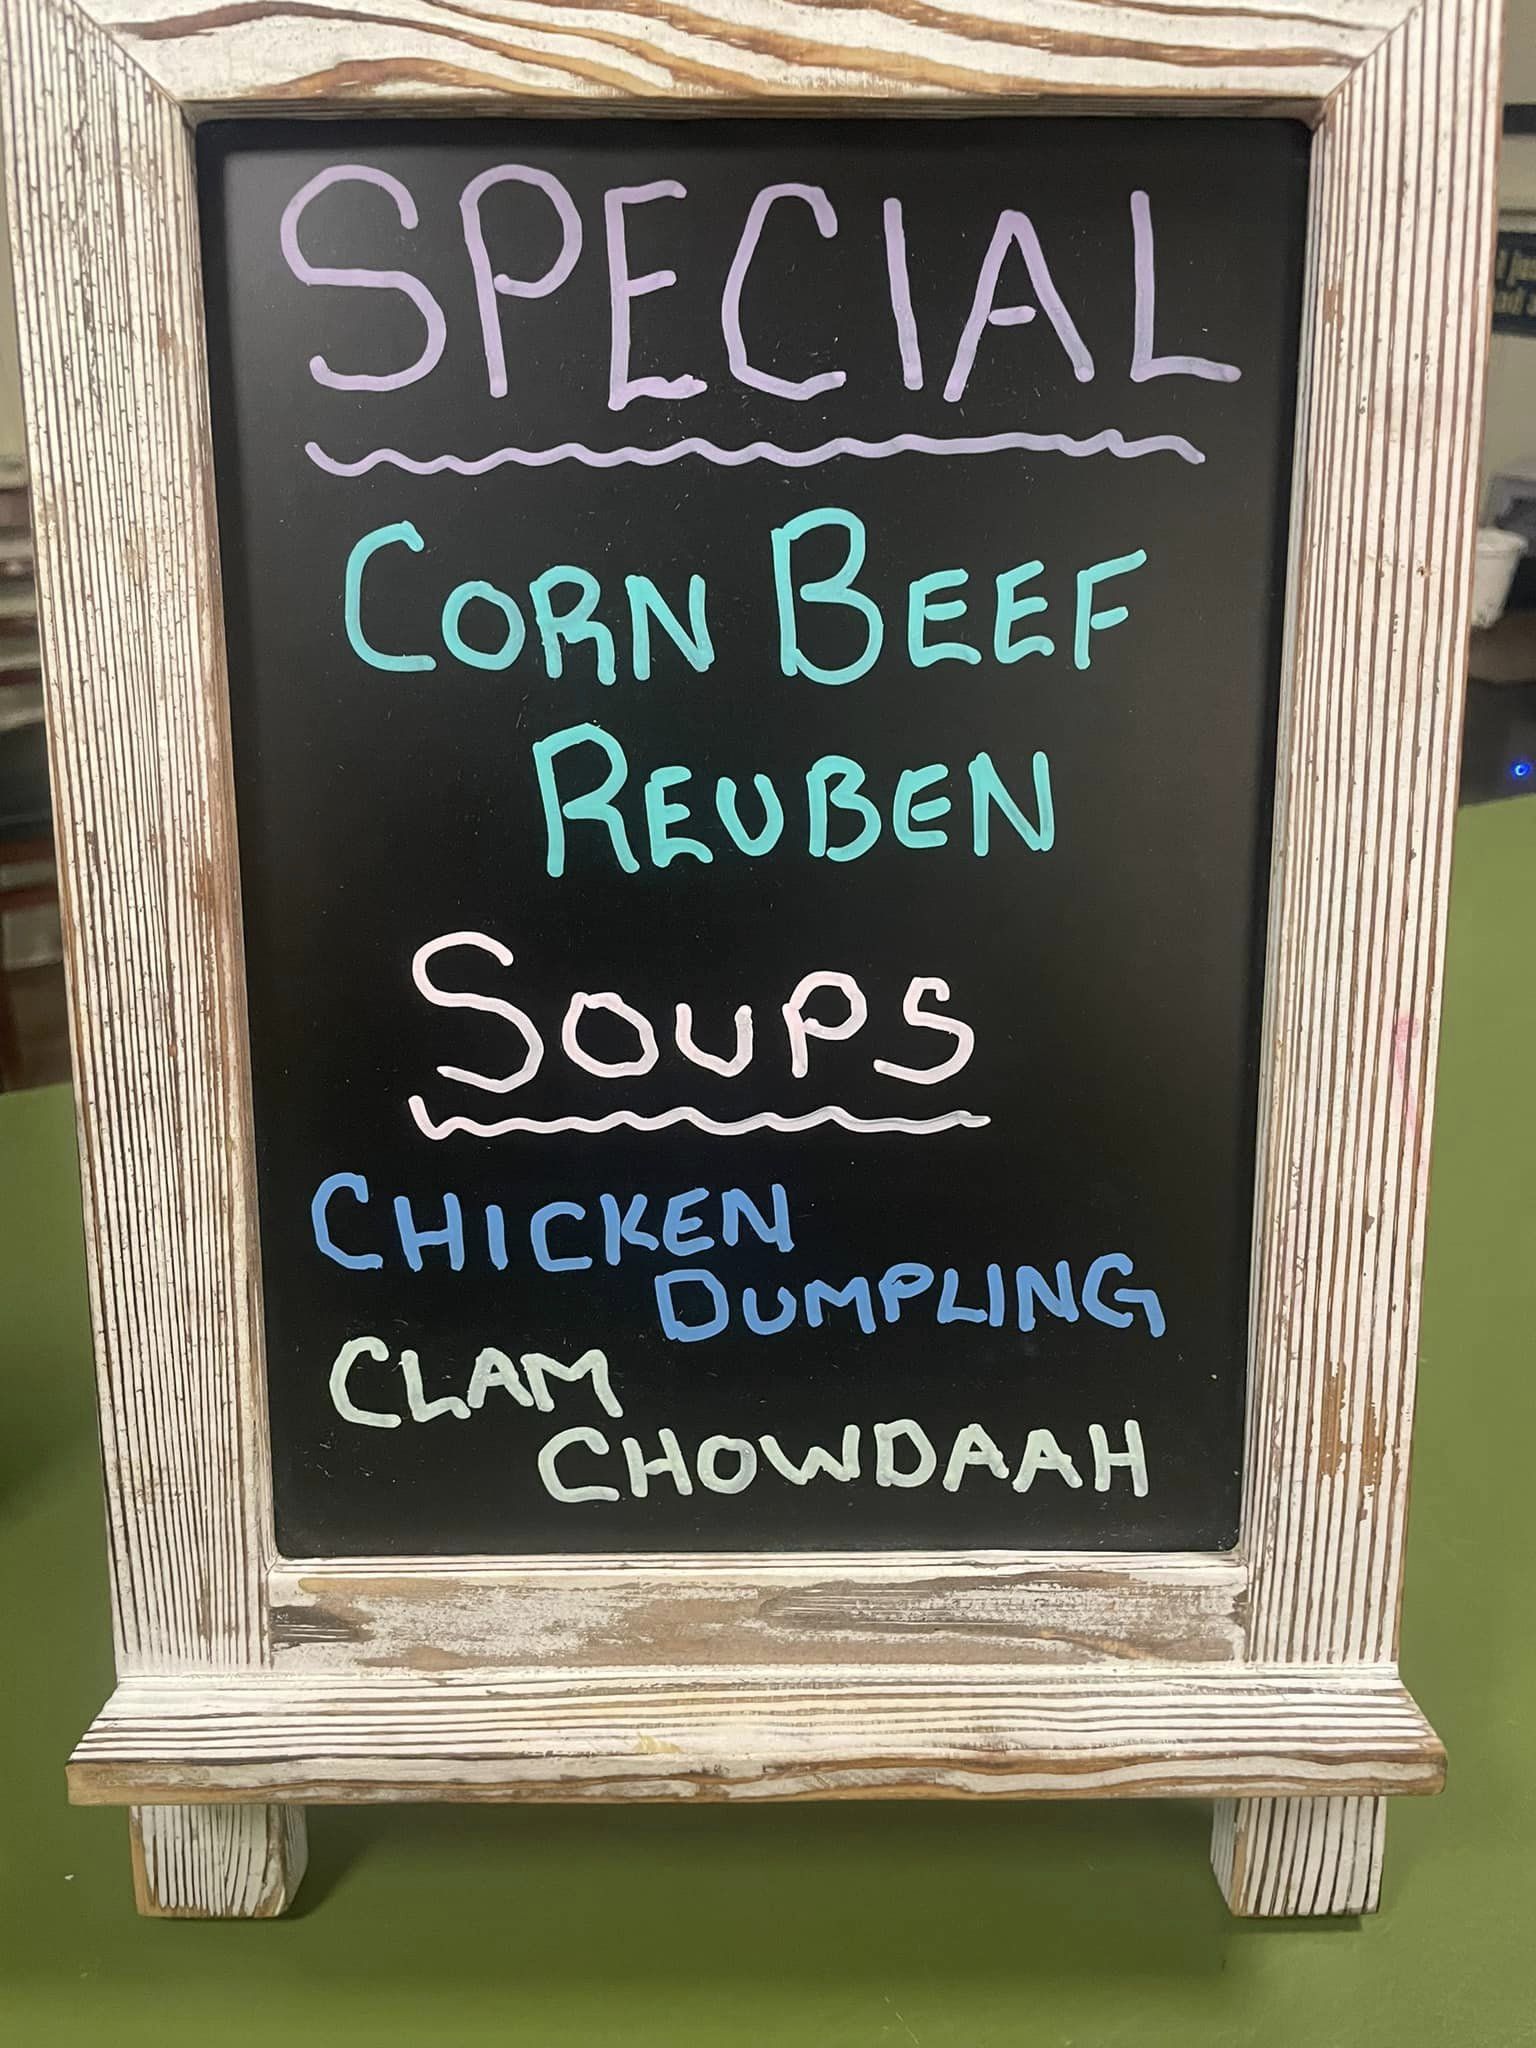 SPECIAL
CORN BEEF
REUBEN
SOUPS
CHICKEN
DUMPLING
CLAM
CHOWDAAH